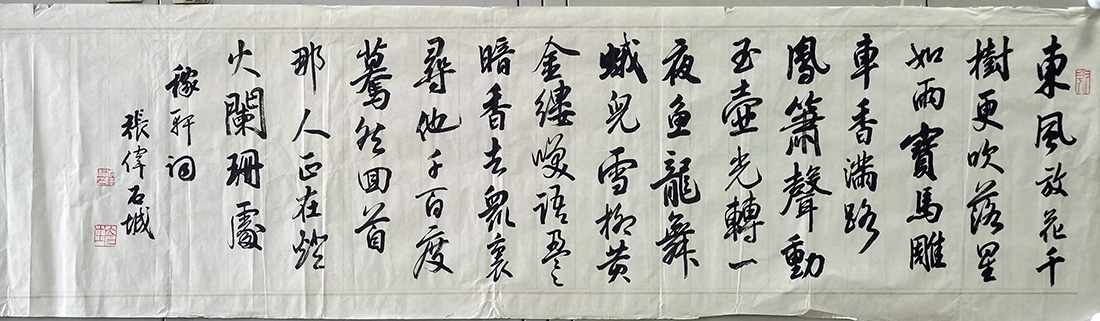 東風放花千
樹更吹落星
如雨寶馬雕
車香滿路
鳳簫聲動
玉壺光轉一
夜魚龍舞
蛾兒雪柳黄
金縷咲語盈々
暗香去眾裏
尋他千百度
驀然回首
那人正在燈
火闌珊處
稼軒詞
張偉石城